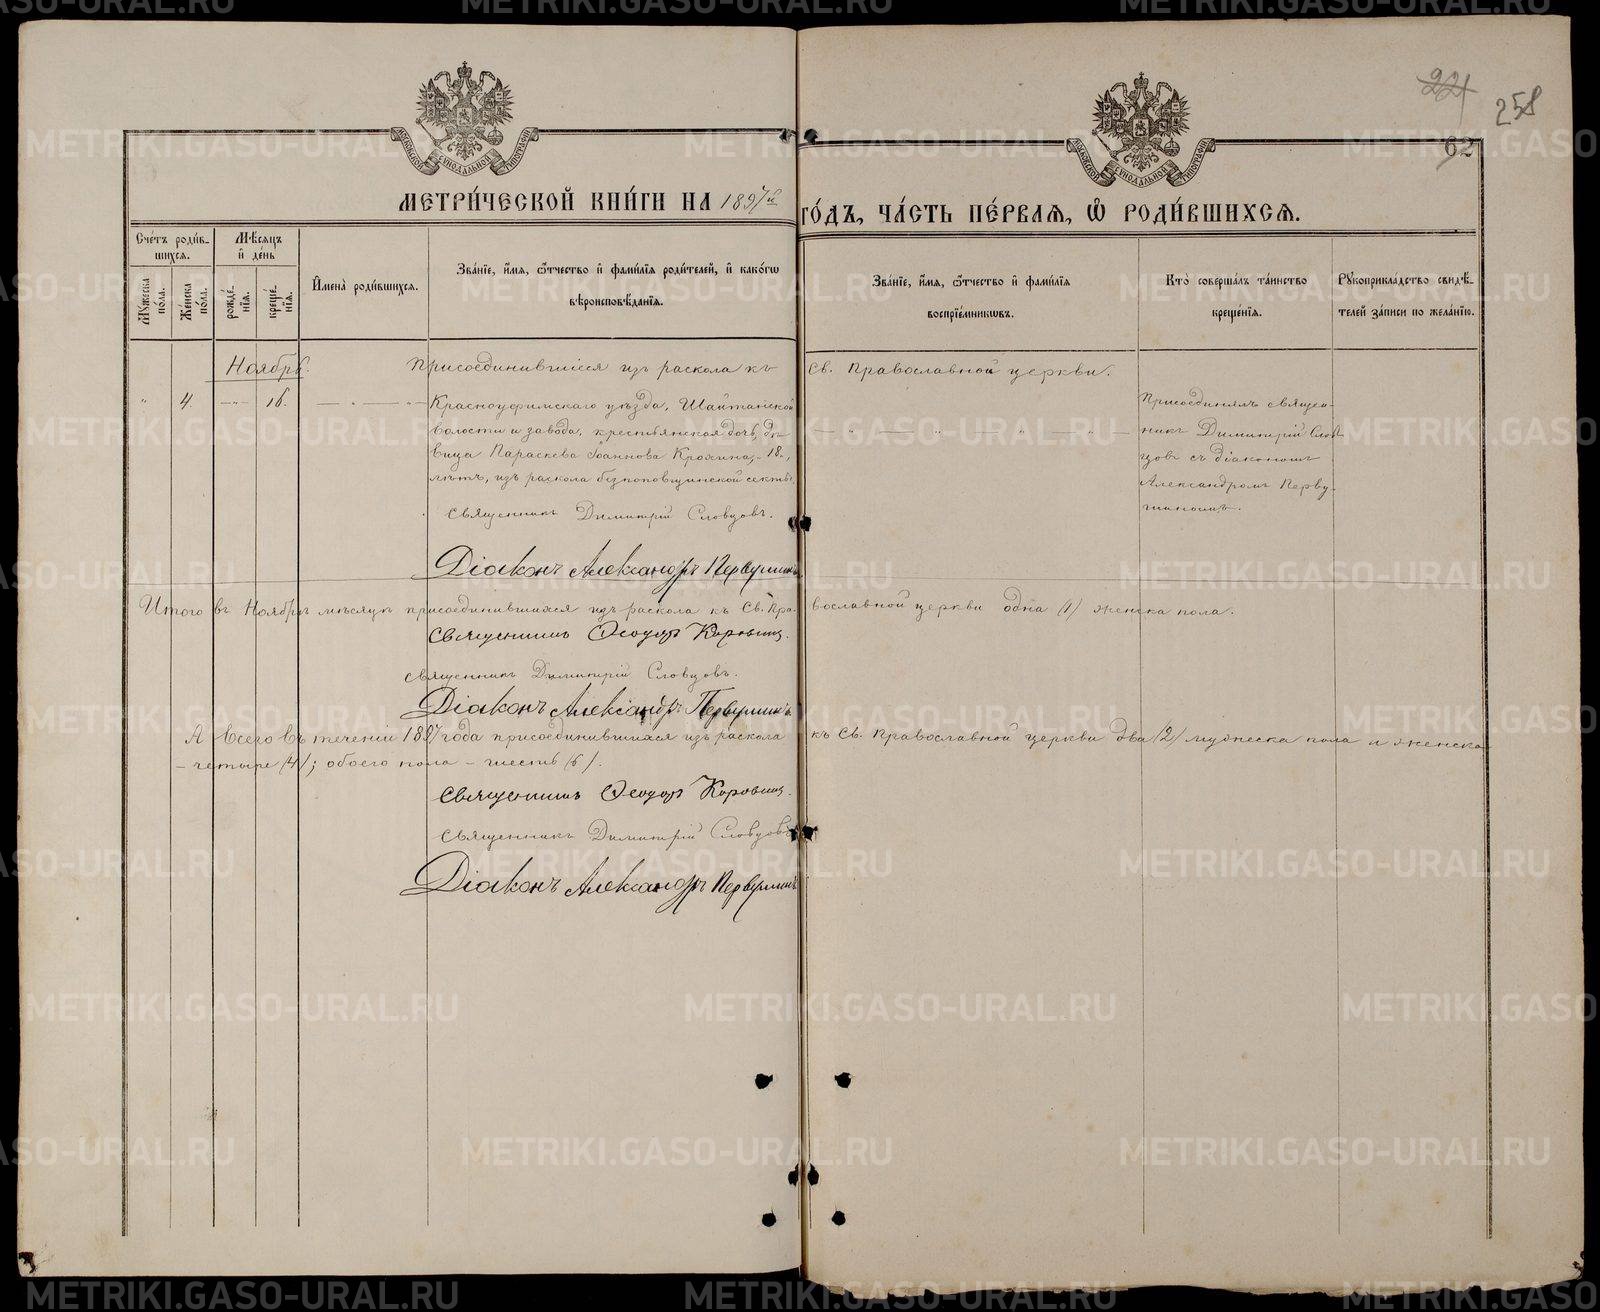 221
258
62
МОСКОВСКОЙ СѴНОДАЛЬНОЙ ТИПОГРАФІИ
МОСКОВСКОЙ СѴНОДАЛЬНОЙ ТИПОГРАФІИ
МЕТРИ́ЧЕСКОЙ КНИ́ГИ НА 1897й
ГО́ДЪ, ЧА́СТЬ ПЕ́РВАЯ, Ѽ РОДИ́ВШИХСЯ.
Сче́тъ роди́в-
шихся.
Мѣ́сяцъ
и҆ де́нь
Мꙋжеска по́ла.
Же́нска по́ла.
рожде́нїѧ.
креще́нїѧ.
И҆мена̀ роди́вшихся.
Зва́нїе, и҆́мя, ѻ҆́тчество и҆ фами́лїя роди́телей, и҆ како́гѡ
вѣроисповѣ́данїя.
Зва́нїе, и҆́мя, ѻ҆́тчество и҆ фами́лїя
воспрїе́мниковъ.
Кто̀ соверша́лъ та́инство
креще́нїя.
Рꙋкоприкла́дство свидѣ́-
телей за́писи по жела́нїю.
Ноябрь.
Присоединившіеся изъ раскола къ
Св. Православной церкви.
" 4. — " — 16. — " — " —
Красноуфимскаго уѣзда, Шайтанской
волости и завода, крестьянская дочь, дѣ-
вица Параскева Іоаннова Крохина, 18
лѣтъ, изъ раскола безпоповщинской секты.
Присоединялъ священ-
никъ Димитрій Слов-
цовъ съ діакономъ
Александромъ Перву-
шинымъ.
Священникъ Димитрій Словцовъ.
Діаконъ Александръ Первушинъ
Итого въ Ноябрѣ мѣсяцѣ присоединившихся изъ раскола къ Св. Пра-
вославной церкви одна (1) женска пола.
Священникъ Ѳеодоръ Коровинъ.
Священникъ Димитрій Словцовъ.
Діаконъ Александръ Первушинъ.
А всего въ теченіи 1897 года присоединившихся изъ раскола
къ Св. Православной церкви два (2) мужеска пола и женска
– четыре (4); обоего пола – шесть (6).
Священникъ Ѳеодоръ Коровинъ.
Священникъ Димитрій Словцовъ
Діаконъ Александръ Первушинъ
METRIKI.GASO-URAL.RU